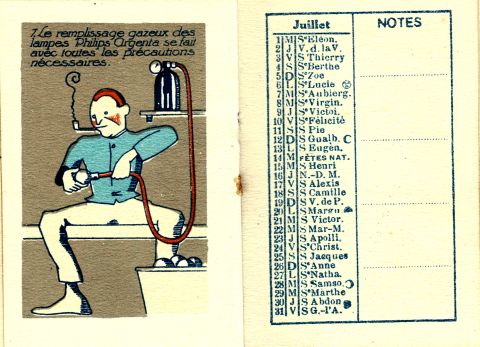 7. Le remplissage gazeux des
lampes Philips Argenta se fait
avec toutes les précautions
nécessaires.
Juillet
1 M Sᵗ Eléon.
2 J V. d. la V.
3 V S Thierry
4 S Sᵉ Berthe
5 D Sᵉ Zoé
6 L Sᵉ Lucie
7 M Sᵉ Aubierg.
8 M Sᵉ Virgin.
9 J Sᵉ Victoi.
10 V Sᵉ Félicité
11 S S Pie
12 D S Gualb.
13 L S Eugèn.
14 M FÊTES NAT.
15 M S Henri
16 J N.-D. M.
17 V S Alexis
18 S S Camille
19 D S V. de P.
20 L S Margu
21 M S Victor.
22 M Sᵉ Mar-M.
23 J S Apolli.
24 V Sᵉ Christ.
25 S S Jacques
26 D Sᵉ Anne
27 L Sᵉ Natha.
28 M S Samso.
29 M Sᵉ Marthe
30 J S Abdon
31 V S G.-l'A.
NOTES